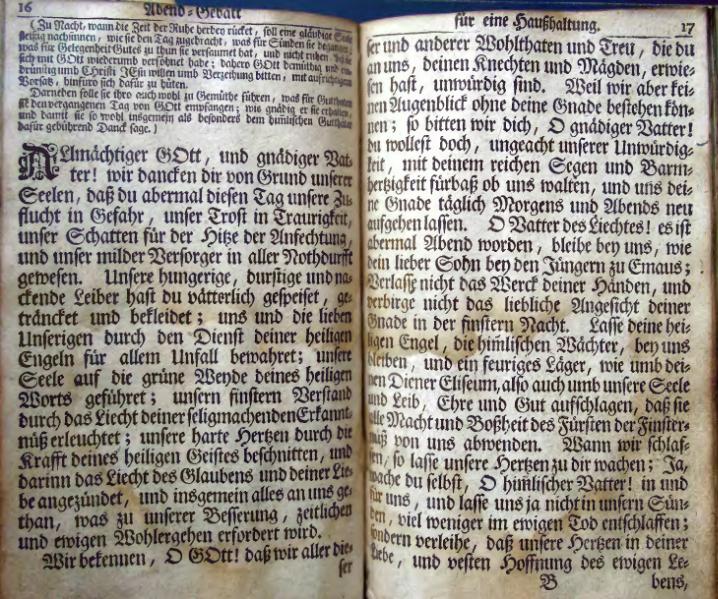 16 Abend-Gebätt
( Zu Nacht, wann die Zeit der Ruhe herbey rücket, soll eine gläubige Seele
fleißig nachsinnen, wie sie den Tag zugebracht, was für Sünden sie begangen,
was für Gelegenheit Gutes zu thun sie versaumet hab, und nicht ruhen
sich mit GOtt wiederumb versöhnet habe; dahero GOtt demüthig und
brünstig umb Christi JEsu willen umb Verzeihung bitten, mit auffrichtigem
Vorsatz, hinfüro sich dafür zu hüten.
Darneben solle sie ihro auch wohl zu Gemüthe führen, was für Gutthaten
sie den vergangenen Tag von GOtt empfangen; wie gnädig er sie erhalten,
und damit sie so wohl insgemein als besonders dem himlischen Gutthäter
dafür gebührend Danck sage. )
ALlmächtiger GOtt, und gnädiger Vat-
ter! wir dancken dir von Grund unserer
Seelen, daß du abermal diesen Tag unsere Zu-
flucht in Gefahr, unser Trost in Traurigkeit,
unser Schatten für der Hitze der Anfechtung,
und unser milder Versorger in aller Nothdurfft
gewesen. Unsere hungerige, durstige und na-
ckende Leiber hast du vätterlich gespeiset, ge-
träncket und bekleidet; uns und die lieben
Unserigen durch den Dienst deiner heiligen
Engeln für allem Unfall bewahret; unsere
Seele auf die grüne Weyde deines heiligen
Worts geführet; unsern finstern Verstand
durch das Liecht deiner seligmachenden Erkannt-
nüß erleuchtet; unsere harte Hertzen durch die
Krafft deines heiligen Geistes beschnitten, und
darinn das Liecht des Glaubens und deiner Lie-
be angezündet, und insgemein alles an uns ge-
than, was zu unserer Besserung, zeitlichen
und ewigen Wohlergehen erfordert wird.
Wir bekennen, O GOtt! daß wir aller die-
ser
für eine Haußhaltung. 17
ser und anderer Wohlthaten und Treu, die du
an uns, deinen Knechten und Mägden, erwie-
sen hast, unwürdig sind. Weil wir aber kei-
nen Augenblick ohne deine Gnade bestehen kön-
nen; so bitten wir dich, O gnädiger Vatter!
du wollest doch, ungeacht unserer Unwürdig-
keit, mit deinem reichen Segen und Barm-
hertzigkeit fürbaß ob uns walten, und uns dei-
ne Gnade täglich Morgens und Abends neu
aufgehen lassen. O Vatter des Liechtes! es ist
abermal Abend worden, bleibe bey uns, wie
dein lieber Sohn bey den Jüngern zu Emaus;
Verlasse nicht das Werck deiner Händen, und
verbirge nicht das liebliche Angesicht deiner
Gnade in der finstern Nacht. Lasse deine hei-
ligen Engel, die himlischen Wächter, bey uns
bleiben, und ein feuriges Läger, wie umb dei-
nen Diener Eliseum, also auch umb unsere Seele
und Leib, Ehre und Gut aufschlagen, daß sie
alle Macht und Boßheit des Fürsten der Finster-
nüß von uns abwenden. Wann wir schlaf-
fen, so lasse unsere Hertzen zu dir wachen; Ja,
wache du selbst, O himlischer Vatter! in und
für uns, und lasse uns ja nicht in unsern Sün-
den, viel weniger im ewigen Tod entschlaffen;
sondern verleihe, daß unsere Hertzen in deiner
Liebe, und vesten Hoffnung des ewigen Le-
B bens,